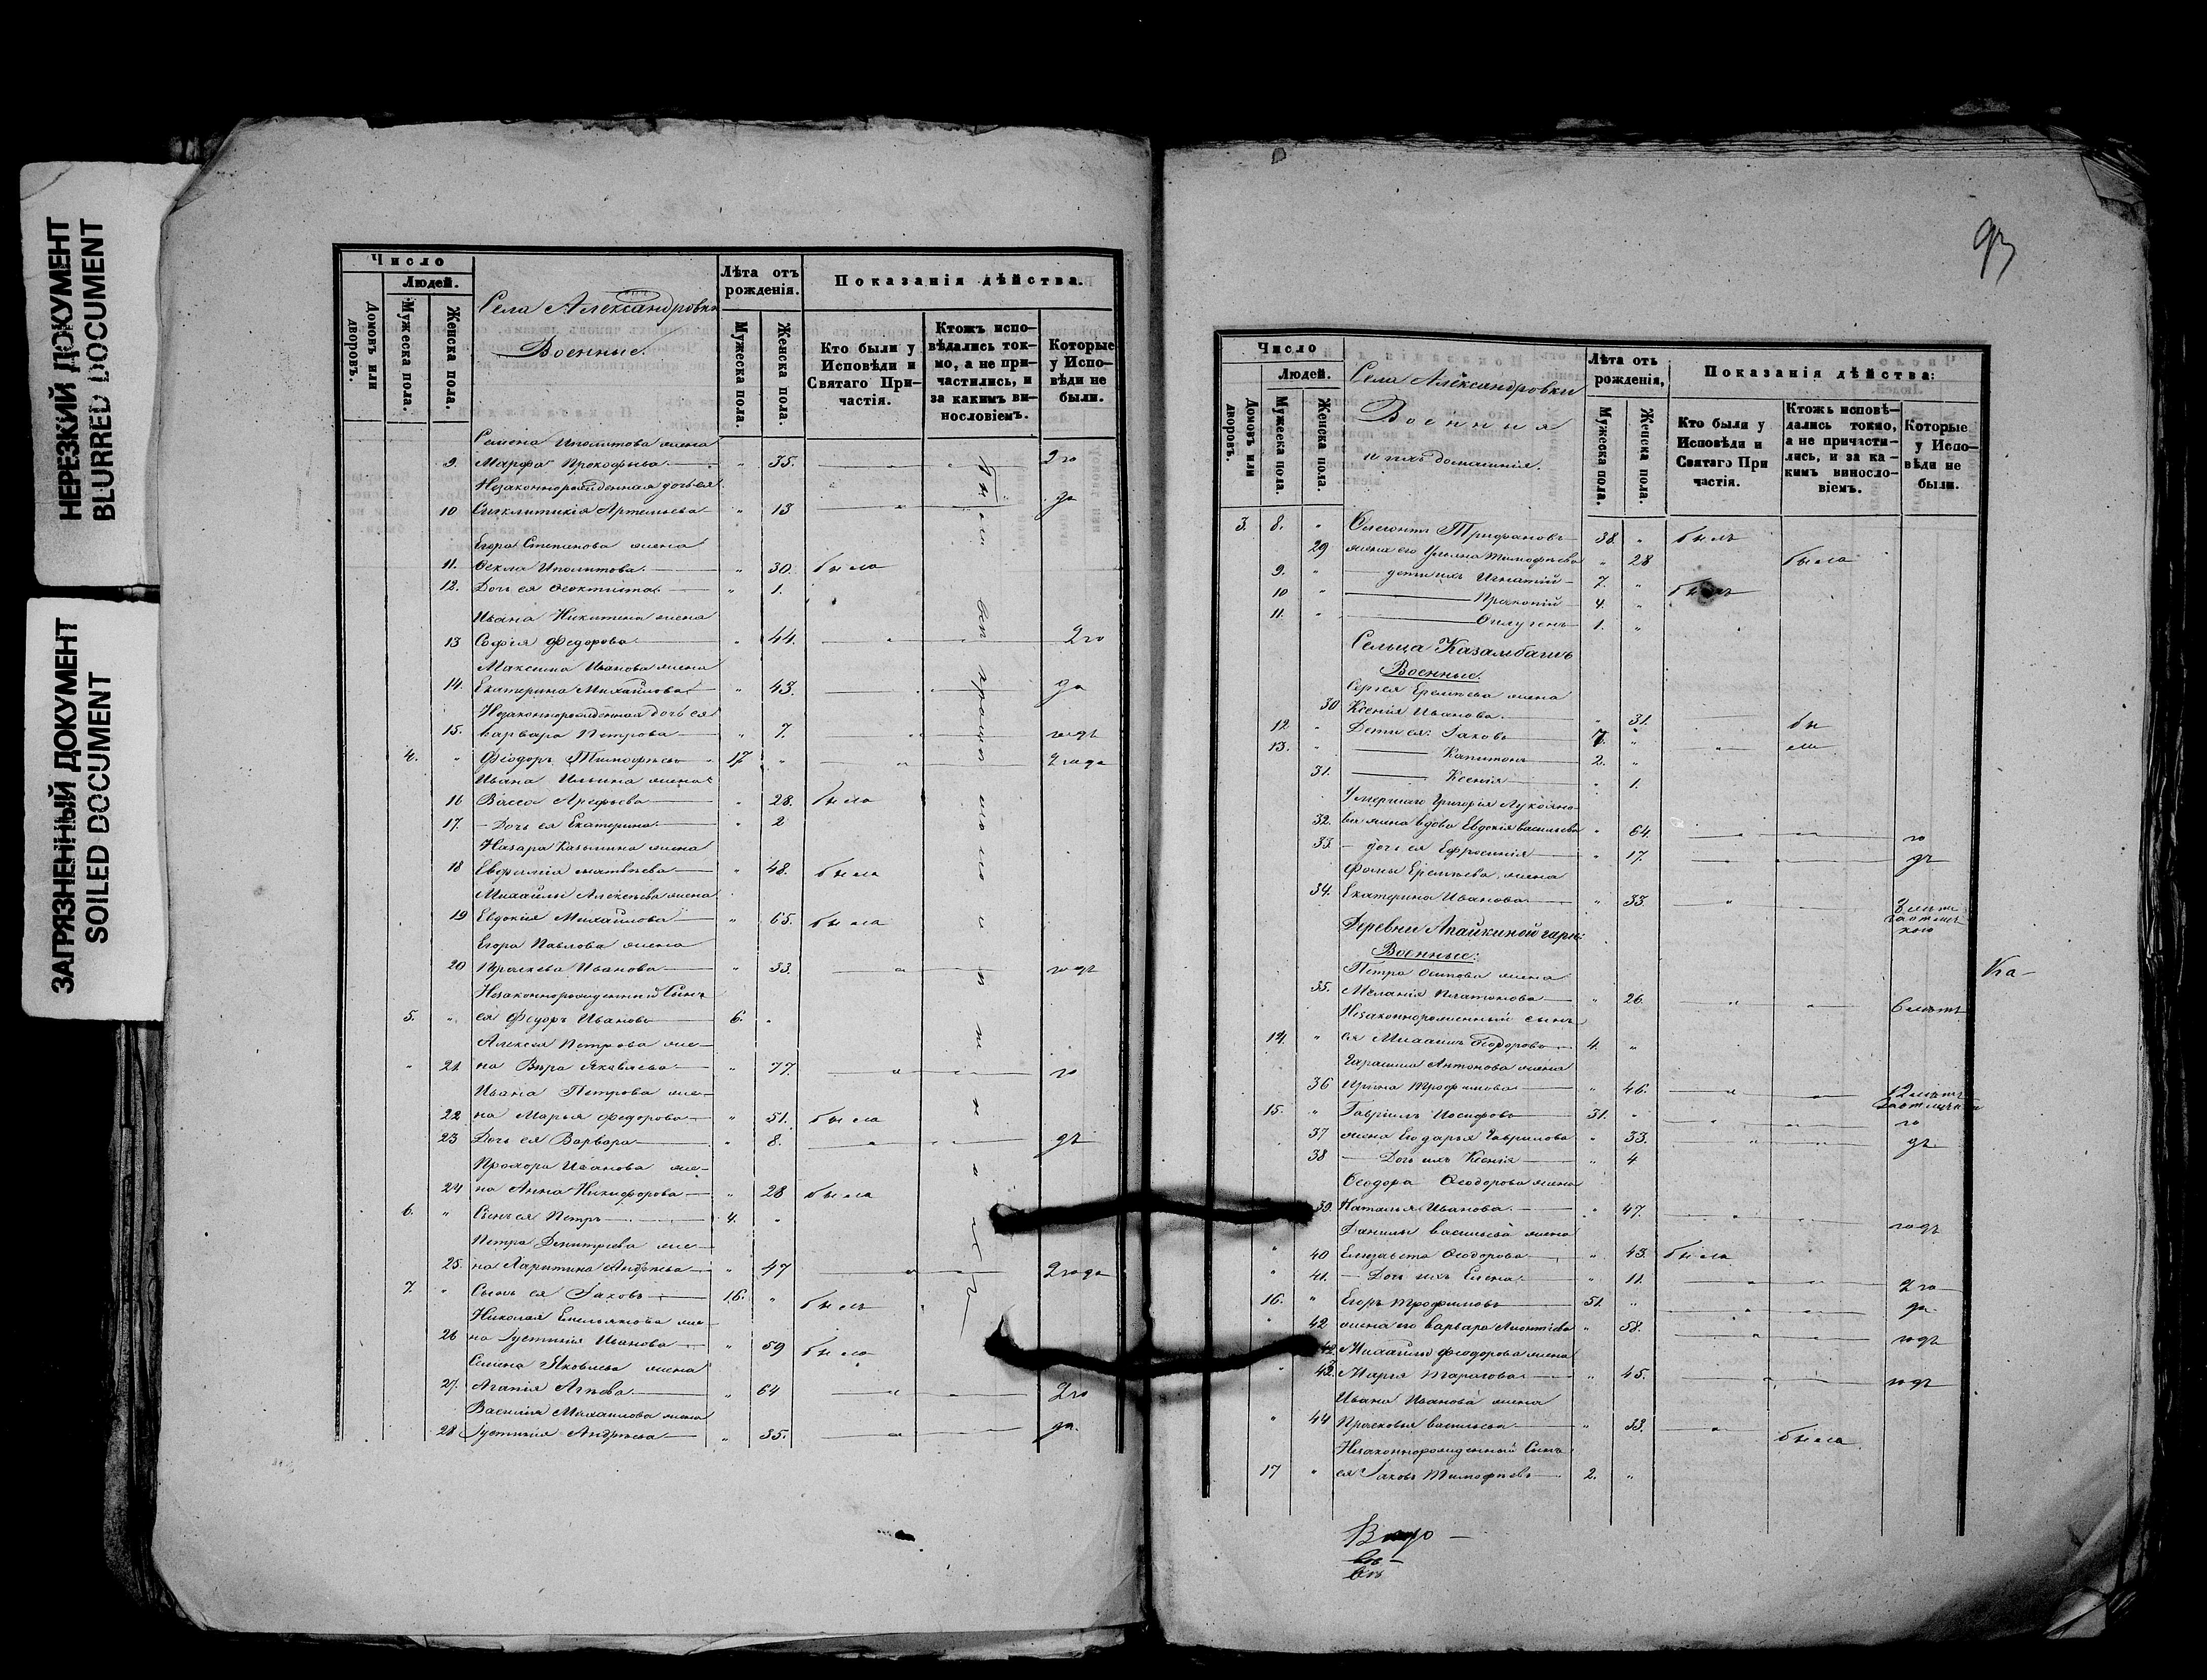 НЕРЕЗКИЙ ДОКУМЕНТ
BLURRED DOCUMENT
ЗАГРЯЗНЕННЫЙ ДОКУМЕНТ
SOILED DOCUMENT
Число
Людей.
Домовъ или дворовъ.
Мужеска пола.
Женска пола.
Села Александровки
Военные.
Лѣта отъ рожденія.
Мужеска пола.
Женска пола.
Показанія дѣйства.
Кто были у Исповѣди и Святаго Причастія.
Ктожъ исповѣдались токмо, а не причастились, и за какимъ винословіемъ.
Которые у Исповѣди не были.
Семена Иполитова жена
9. Марфа Прокофьева " 35. 2 го
Незаконнорожденная дочь ея
10 Синклитикія Артемьева " 13 да
Егора Степанова жена
11. Фекла Иполитова. " 30. была
12. Дочь ея Феоктиста " 1.
Ивана Никитина жена
13 Софія Федорова " 44. 2 го
Максима Иванова жена
14. Екатерина Михайлова " 43. да
Незаконнорожденная дочь ея
15. Варвара Петрова " 7. годъ
4. " Фіодоръ Тимофѣевъ 17 " 2 года
Ивана Ильина жена
16 Васса Арефьева " 28. была
17. Дочь ея Екатерина " 2
Назара Казьмина жена
18 Евфимія Матвѣева " 48. была
Михайлы Алексѣева жена
19 Евдокия Михайлова " 65. была
Егора Павлова жена
20 Прасковья Иванова " 33. годъ
Незаконнорожденный Сынъ
5. " ея Федоръ Ивановъ 6. "
Алексея Петрова же-
" 21. на Вѣра Яковлева " 77. го
Ивана Петрова же-
22 на Марья Федорова " 51. была
23 Дочь ея Варвара " 8. дъ
Прохора Иванова же-
24 на Анна Никифорова " 28 была
6. " Сынъ ея Петръ 4. "
Петра Дмитріева же-
25. на Харитина Андрѣева " 47 2 года
7. " Сынъ ея Іаковъ 16. " былъ
Николая Емельянова же-
26 на Іустинія Иванова " 59 была
Семена Яковлева жена
27. Агапія " 64 2 го
Василія Михаилова жена
28 Іустинія Андрѣева " 35. да
93
Число
Людей.
Домовъ или дворовъ.
Мужеска пола.
Женска пола.
Села Александровки
Военныя
и ихъ домашнія.
Лѣта отъ рожденія,
Мужеска пола.
Женска пола.
Показанія дѣйства:
Кто были у Исповѣди и Святаго При частія.
Ктожъ исповѣдались токмо, а не причастились, и за какимъ винословіемъ.
Которые у Исповѣди не были.
3. 8. " Трифановъ 38. " былъ
29 жена его Ульяна Тимофѣева " 28 была
9. " дети ихъ Игнатій 7. " былъ
10 " Прокопій 4. "
11. " 1. "
Сельца Казамбашъ
Военные.
Сергея Еремѣева жена
30 Ксенія Иванова. " 31. бы
12 " Дети ея: Іаковъ 7. " ли
13. " Капитонъ 2. "
31. Ксенія " 1.
Умершаго Григорія Лукояно-
32. ва жена вдова Евдокія Васильева " 64. го
33. дочь ея Ефросинія " 17. дъ
Фомы Еремѣева жена
34. Екатерина Иванова " 33.
Деревни Апайкиной гари:
Военные:
Петра Осипова жена
35. Меланія Платонова " 26. 6 лѣтъ
Незаконнорожденный сынъ
14. " ея Михаилъ Ѳеодоровъ 4. "
Гарасима Антонова жена
36 Ирина Трофимова " 46. 12 лѣтъ
15. " Гавріилъ Іосифовъ 51. " го
37 жена его Дарья Гаврилова " 33. дъ
38 Дочь ихъ Ксенія " 4
Ѳеодора Ѳеодорова жена
39. Наталья Иванова. " 47. годъ
Данилы Васильева жена
" 40 Елизавета Ѳеодорова " 43. была
" 41. Дочь ихъ Елена " 11. 2 го
16. " Егоръ Трофимовъ 51. " да
42 жена его Варвара Леонтіева " 58. годъ
Михайлы Фіодорова жена
" 43. Марья Тарасова " 45. годъ
Ивана Иванова жена
" 44 Прасковья Васильева " 33. была
Незаконнорожденный Сынъ
17 " ея Іаковъ Тимофѣевъ 2. "